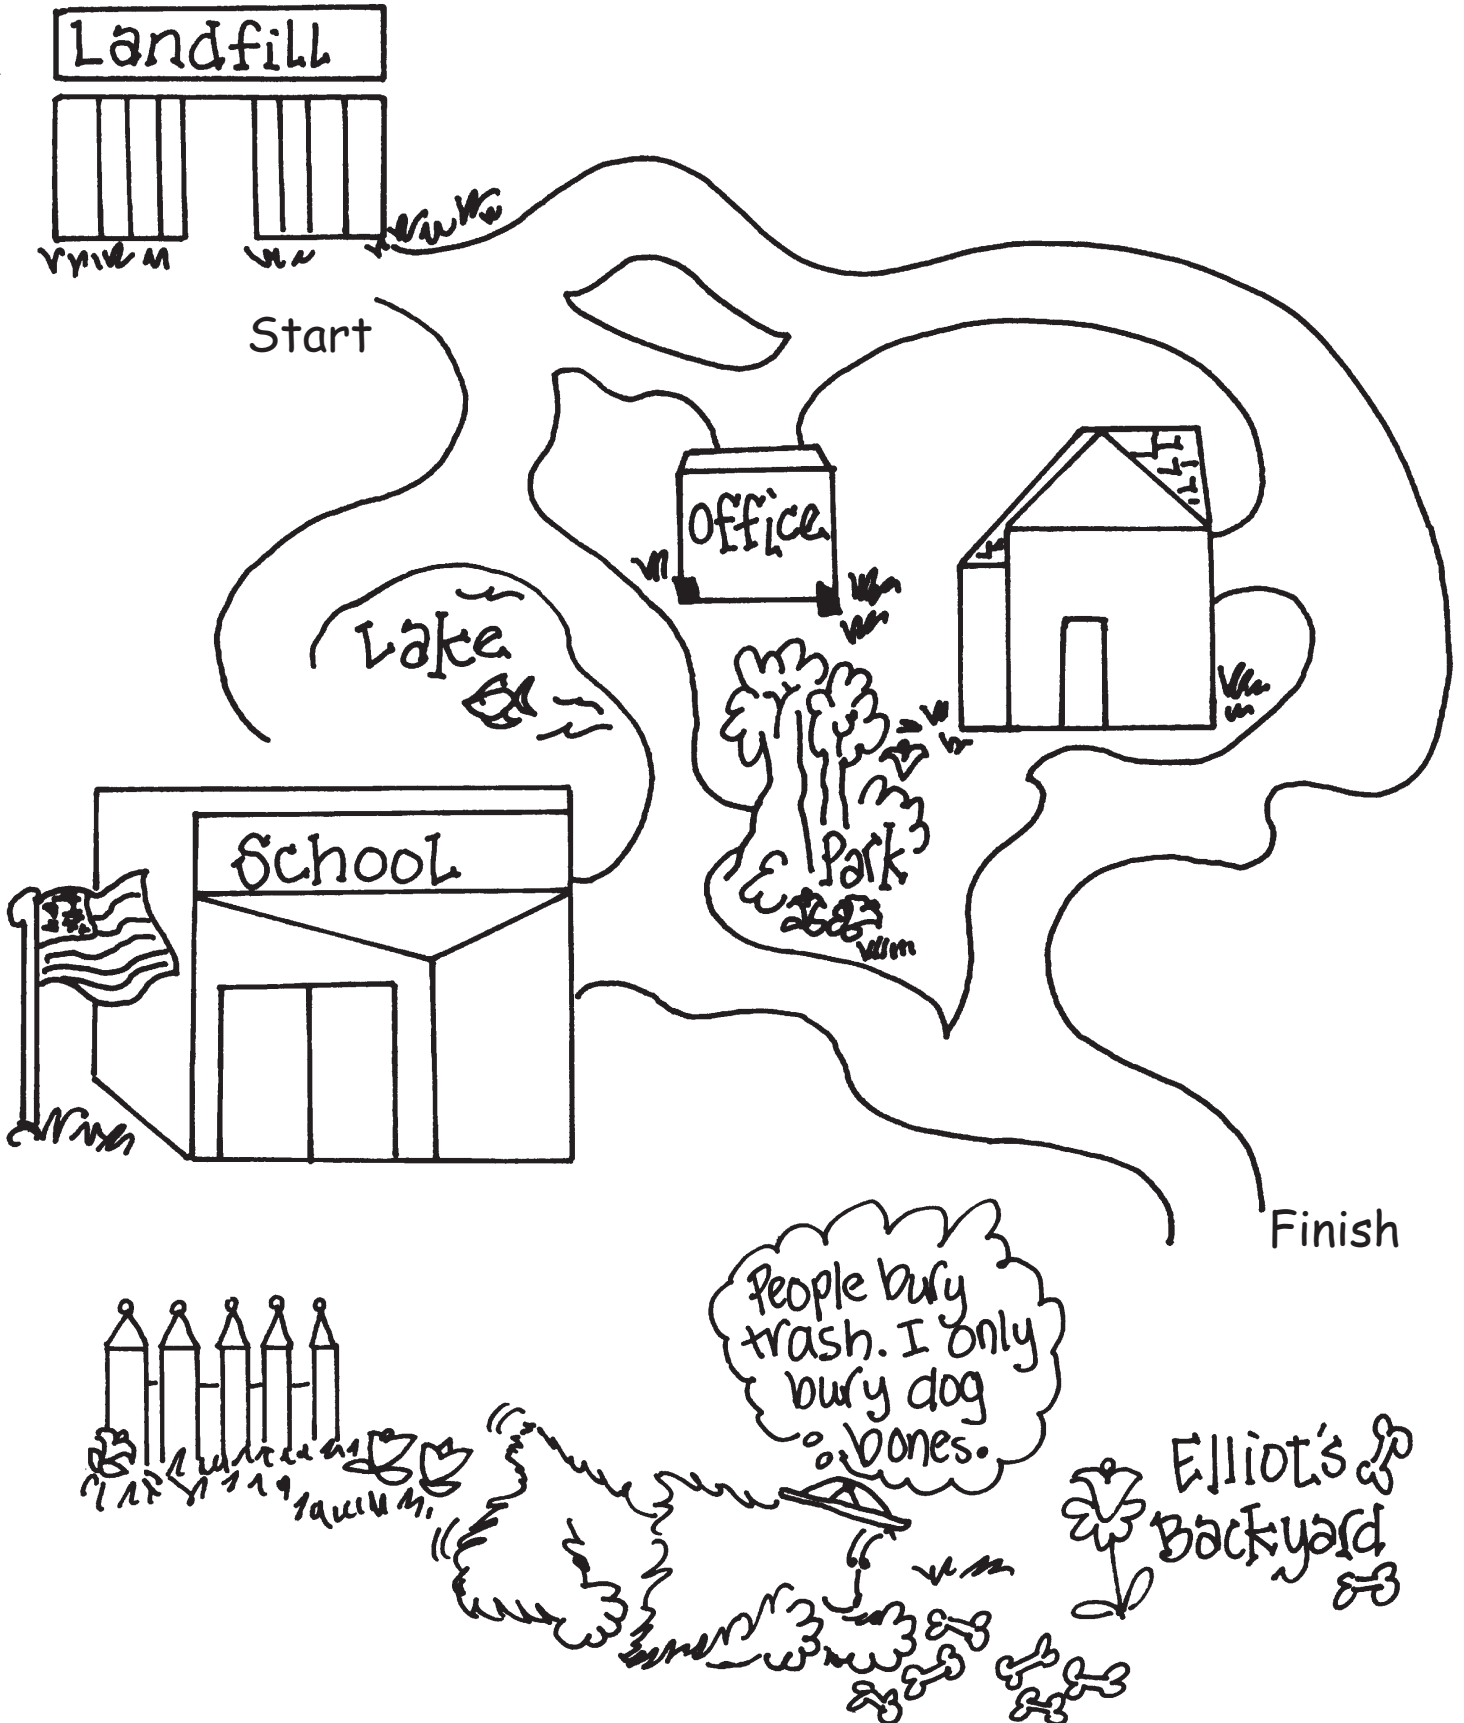 Landfill
Start
Office
Lake
Park
School
Finish
People bury
trash. I only
bury dog
bones.
Elliot's
Backyard